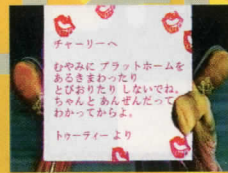 チャーリーへ
むやみに プラットホームを
あるきまわったり
とびおりたり しないでね。
ちゃんと あんぜんだって
わかってからよ。
トゥーティー より